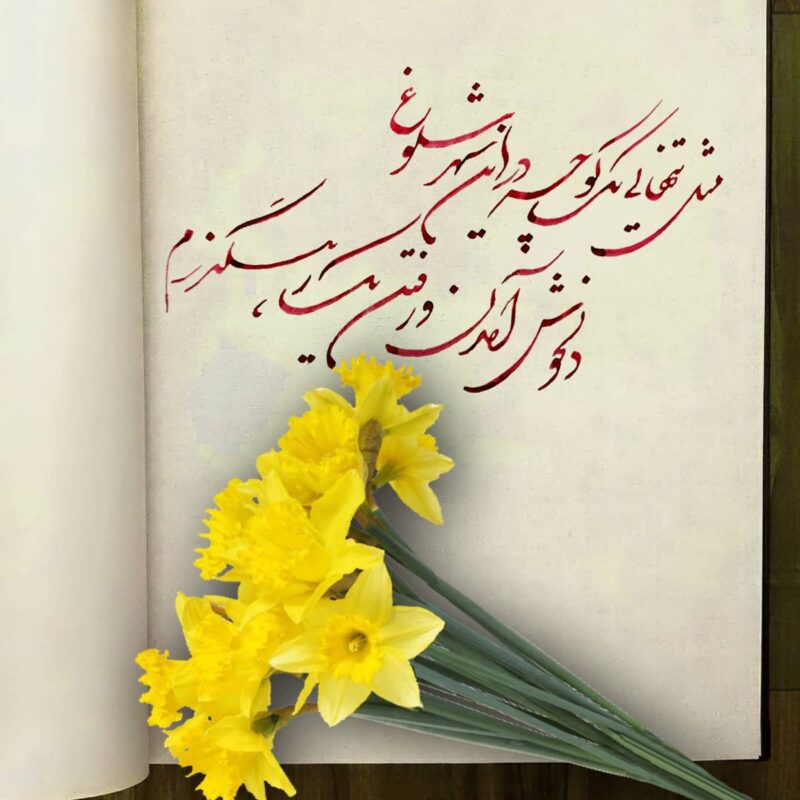 مثل تنهایی یک کوچه در این شهر شلوغ
دلخوش آمدن و رفتن یک رهگذرم